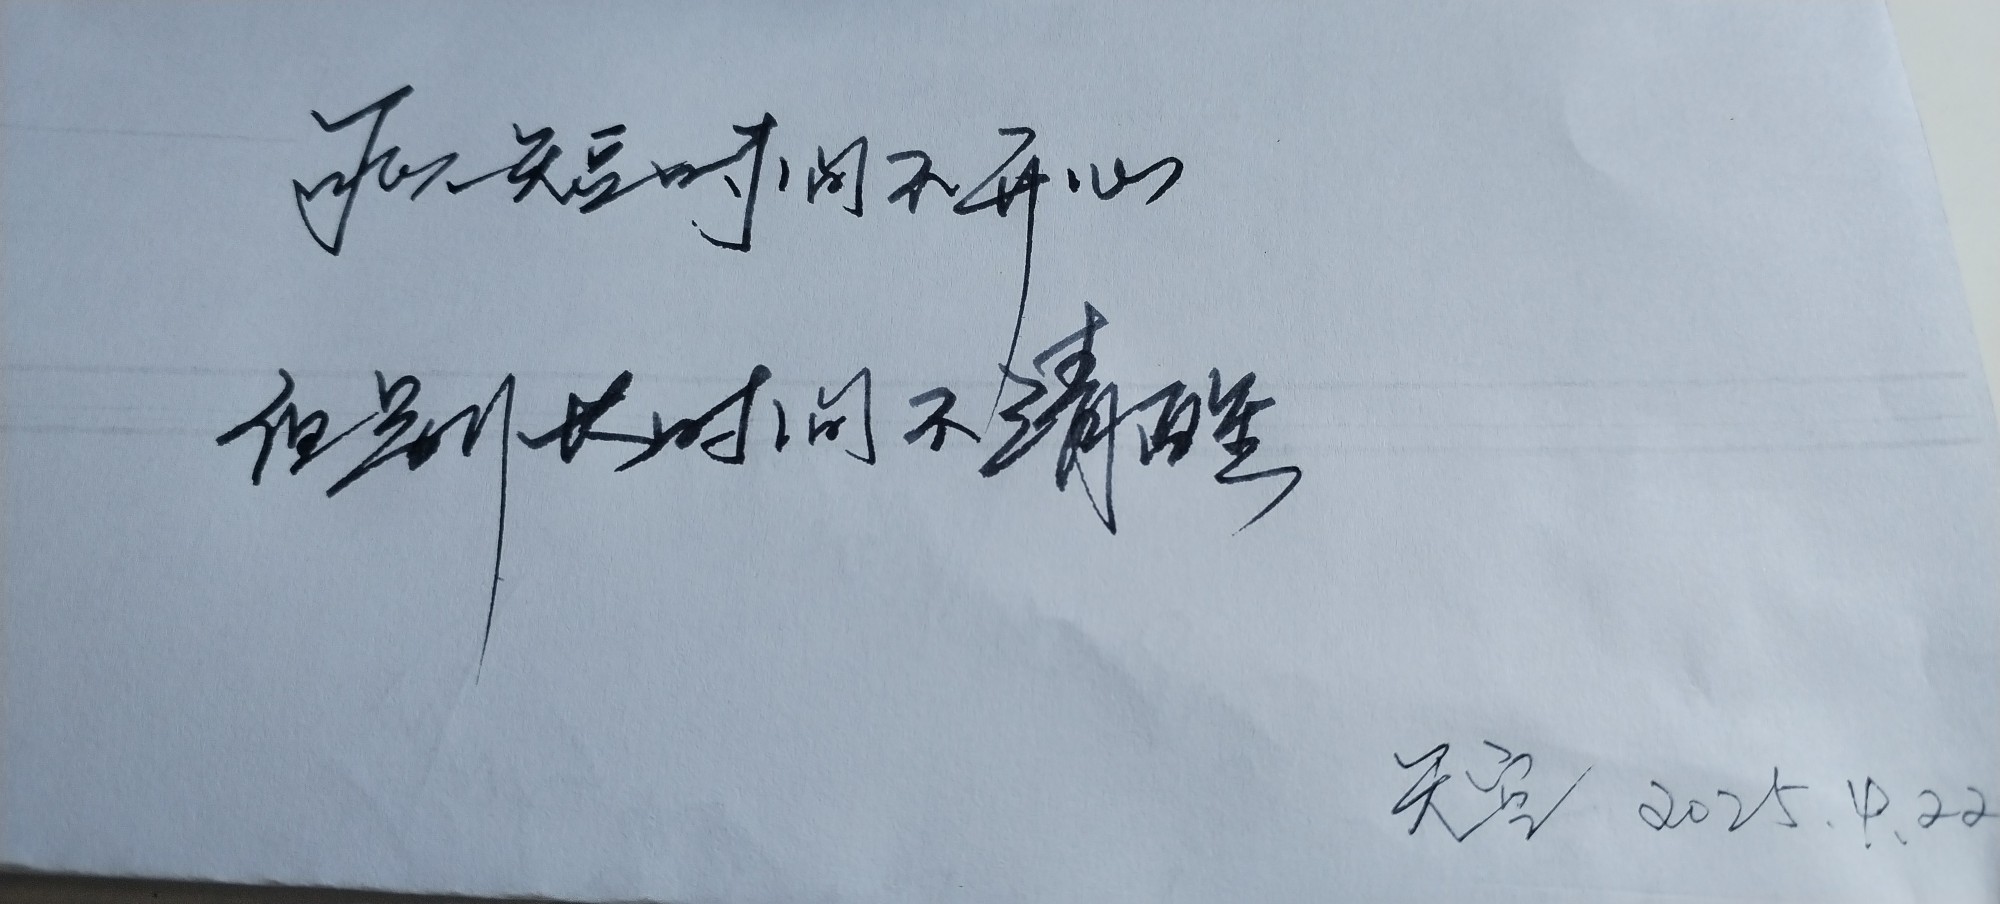 可以短时间不开心
但别长时间不清醒
天宫 2025.4.22